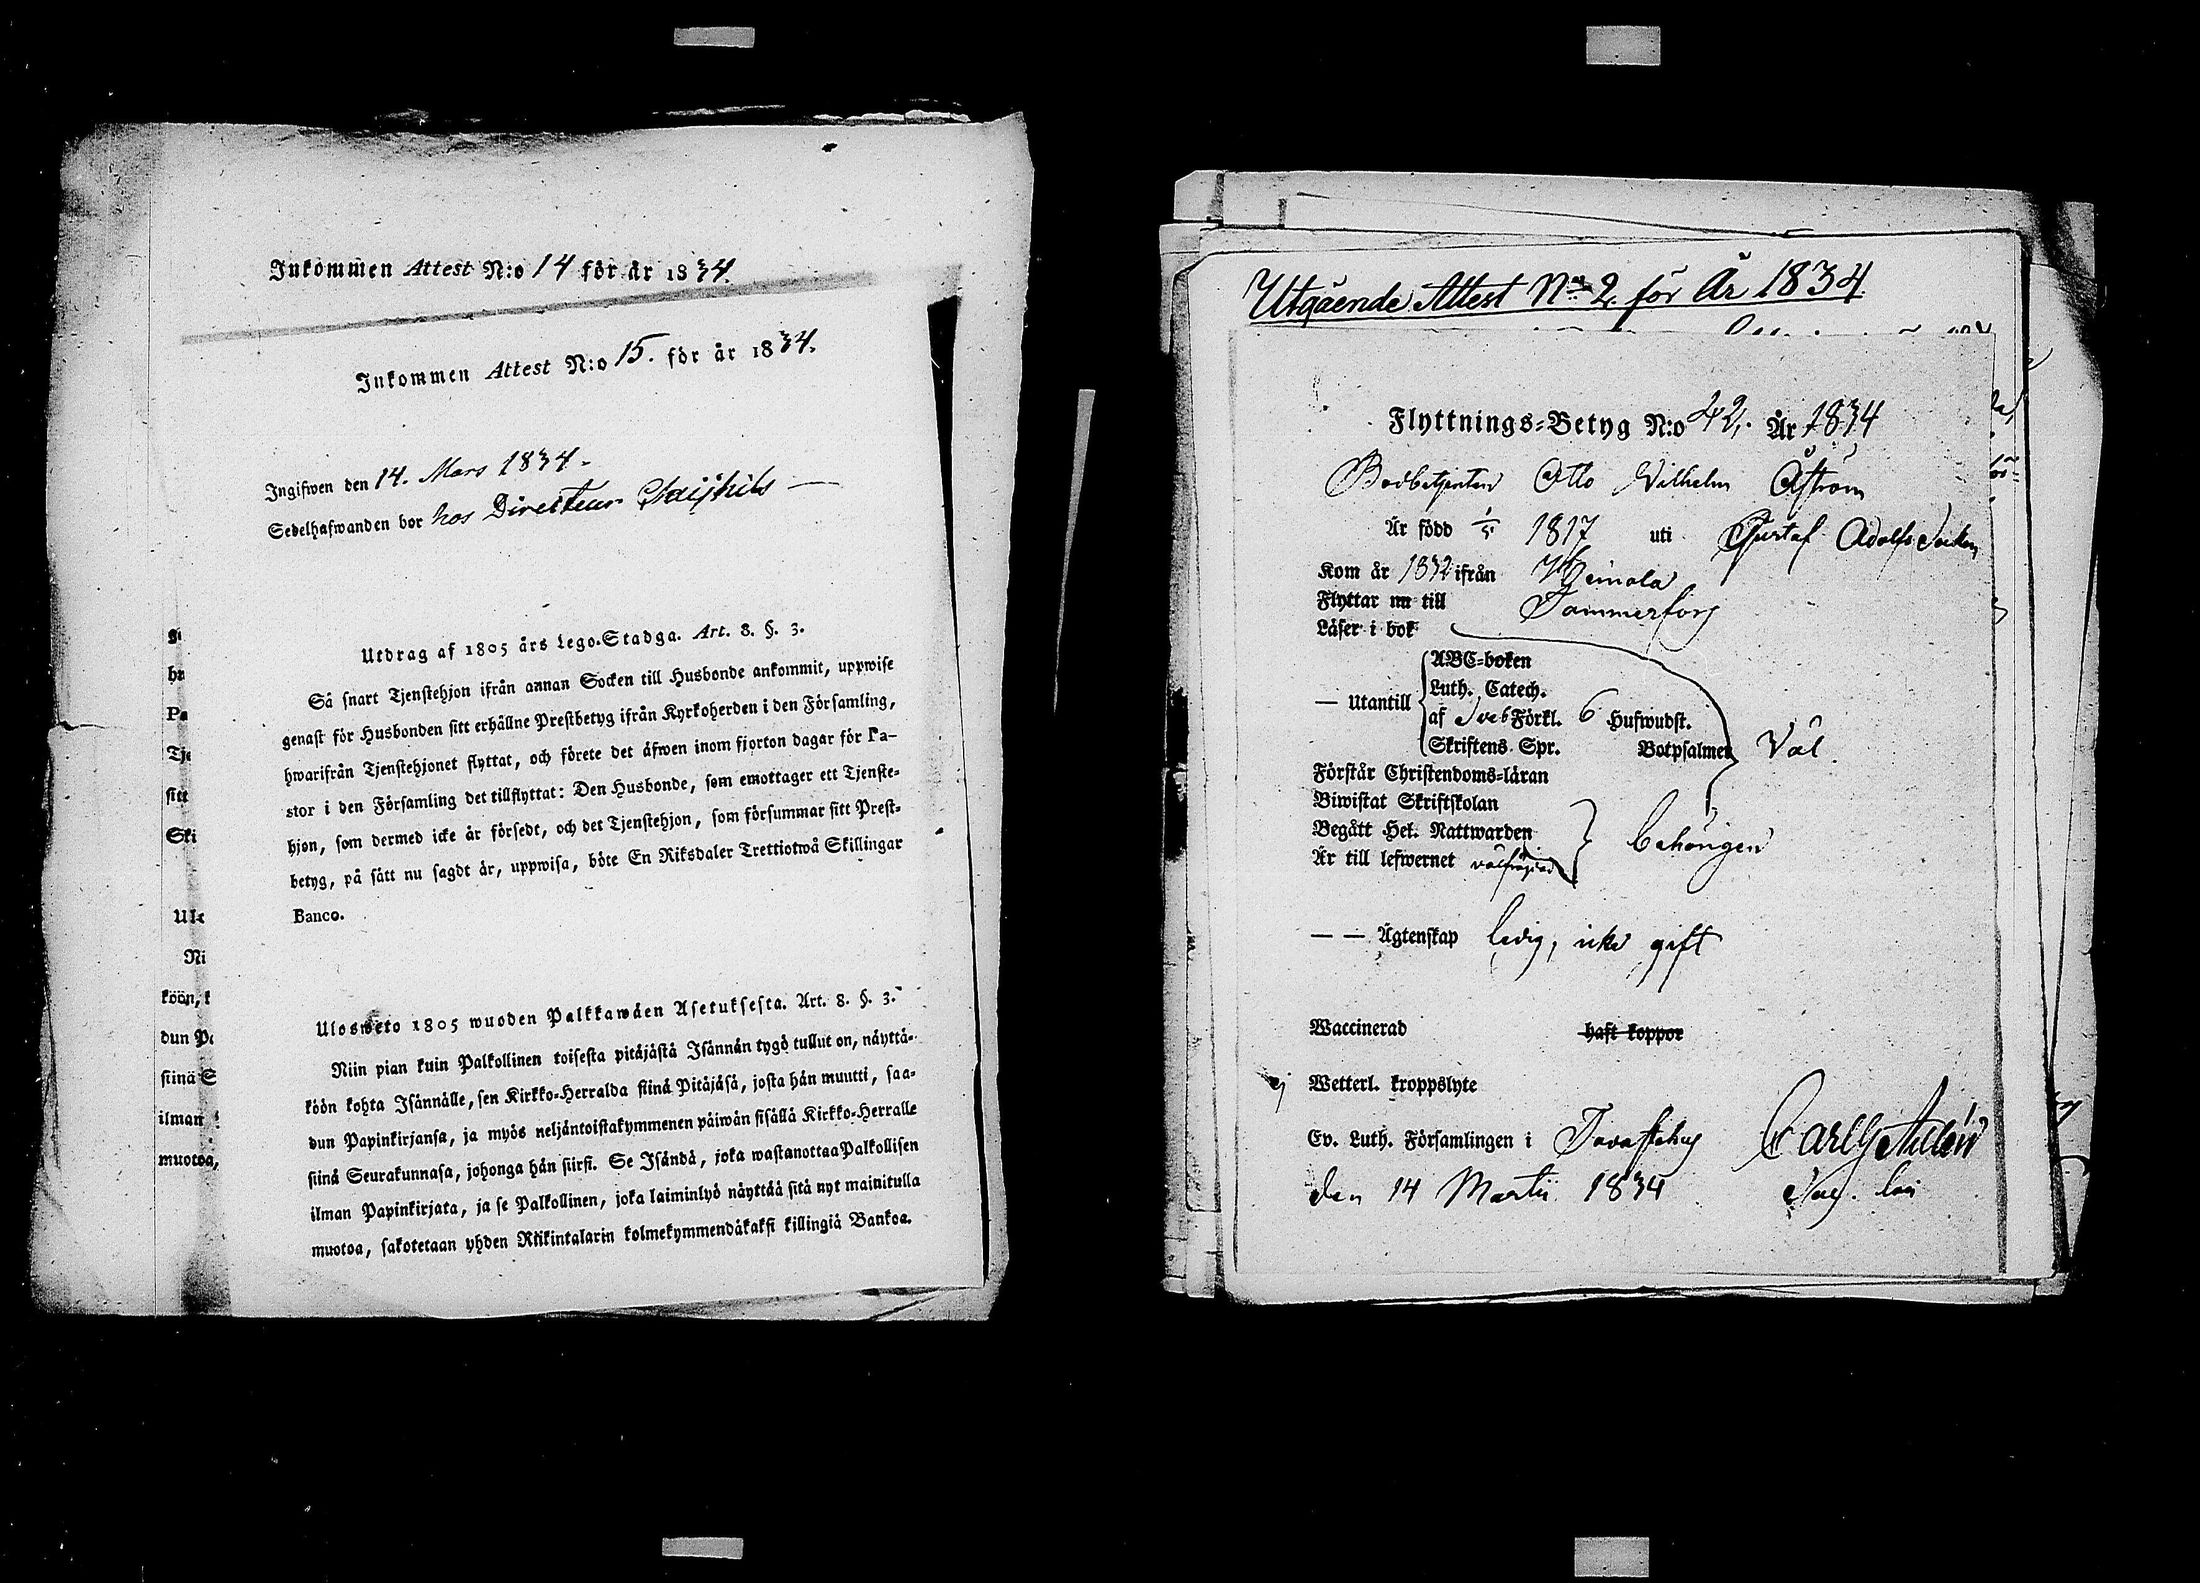 Inkommen Attest N:o 14 för år 1834.
Inkommen Attest N:o 15. för år 1834.
Ingifwen den 14. Mars 1834.
Sedelhafwanden bor hos Directeur
Utdrag af 1805 års Lego-Stadga. Art. 8. §. 3.
Så snart Tjenstehjon ifrån annan Socken till Husbonde ankommit, uppwise
genast för Husbonden sitt erhållne Prestbetyg ifrån Kyrkoherden i den Församling,
hwarifrån Tjenstehjonet flyttat, och förete det äfwen inom fjorton dagar för Pa-
stor i den Församling det tillflyttat: Den Husbonde, som emottager ett Tjenste-
hjon, som dermed icke är försedt, och det Tjenstehjon, som försummar sitt Prest-
betyg, på sätt nu sagdt är, uppwisa, böte En Riksdaler Trettiotwå Skillingar
Banco.
Ulosweto 1805 wuoden Palkkawäen Asetuksesta. Art. 8. §. 3.
Niin pian kuin Palkollinen toisesta pitäjästä Isännän tygö tullut on, näyttä-
köön kohta Isännälle, sen Kirkko-Herralda siinä Pitäjäsä, josta hän muutti, saa-
dun Papinkirjansa, ja myös neljäntoistakymmenen päiwän sisällä Kirkko-Herralle
siinä Seurakunnasa, johonga hän siirsi. Se Isändä, joka wastanottaa Palkollisen
ilman Papinkirjata, ja se Palkollinen, joka laiminlyö näyttää sitä nyt mainitulla
muotoa, sakotetaan yhden Riikintalarin kolmekymmendäkaksi killingiä Bankoa.
Utgående Attest No 2. för År 1834
Flyttnings-Betyg N:o 42. År 1834
Bodbetjenten Otto Wilhelm Åström
Är född 1/5. 1817 uti Gustaf Adolfs Socken
Kom år 1832 ifrån Heinola
Flyttar nu till Tammerfors
Läser i bok
ABC-boken
Luth. Catech.
— Utantill af Sveb Förkl. 6 Hufwudst.
Skriftens Spr. Botpsalmer Väl.
Förstår Christendoms-läran
Biwistat Skriftskolan
Begått Hel. Nattwarden behörigen
Är till lefwernet välfrägdad
— — Ägtenskap ledig, icke gift
Waccinerad haft koppor
ej Wetterl. kroppslyte
Ev. Luth. Församlingen i Tavastehus
den 14 Martii 1834